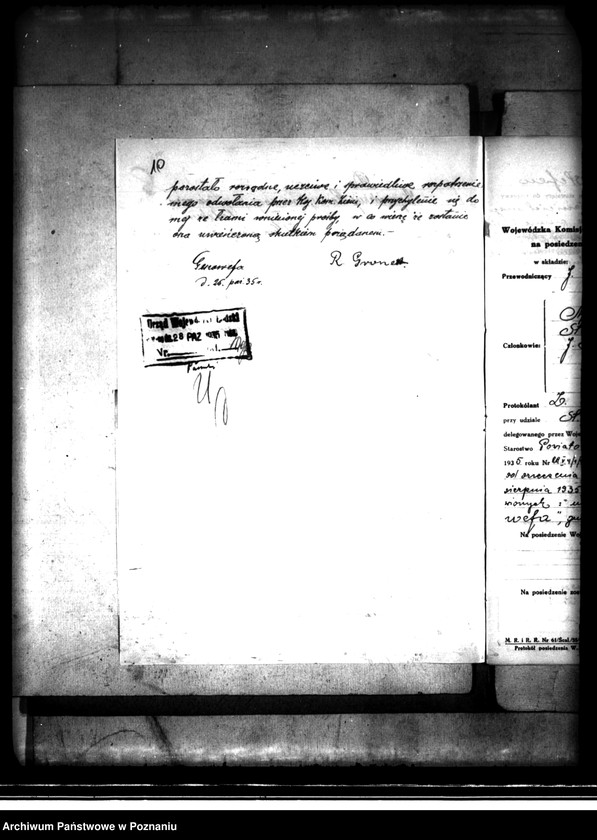 10
pozostało rozsądne, uczciwe i sprawiedliwe rozpatrzenie
mego odwołania przez Wy. Kom. Ziem., i przychylenie się do
mej ze łzami wnoszonej prośby, w co wierzę że zostanie
ona uwieńczoną skutkiem pożądanem.-
Genowefa R Gronet
d. 26. paź. 35 r.
Urząd Wojewódzki Łódzki
28 PAŹ 1935
Nr. zał.
Wojewódzka Komisj
na posiedzen
w składzie:
Przewodniczący J.
St
Członkowie: J.
Protokólant Z.
przy udziale St.
delegowanego przez Woje
Starostwo Powiato
1935 roku Nr
od orzeczenia
sierpnia 1935
wefa",
Na posiedzenie We
Na posiedzenie zos
M. R. i R. R. Nr 61/Scal./
Protokół posiedzenia W.
Archiwum Państwowe w Poznaniu